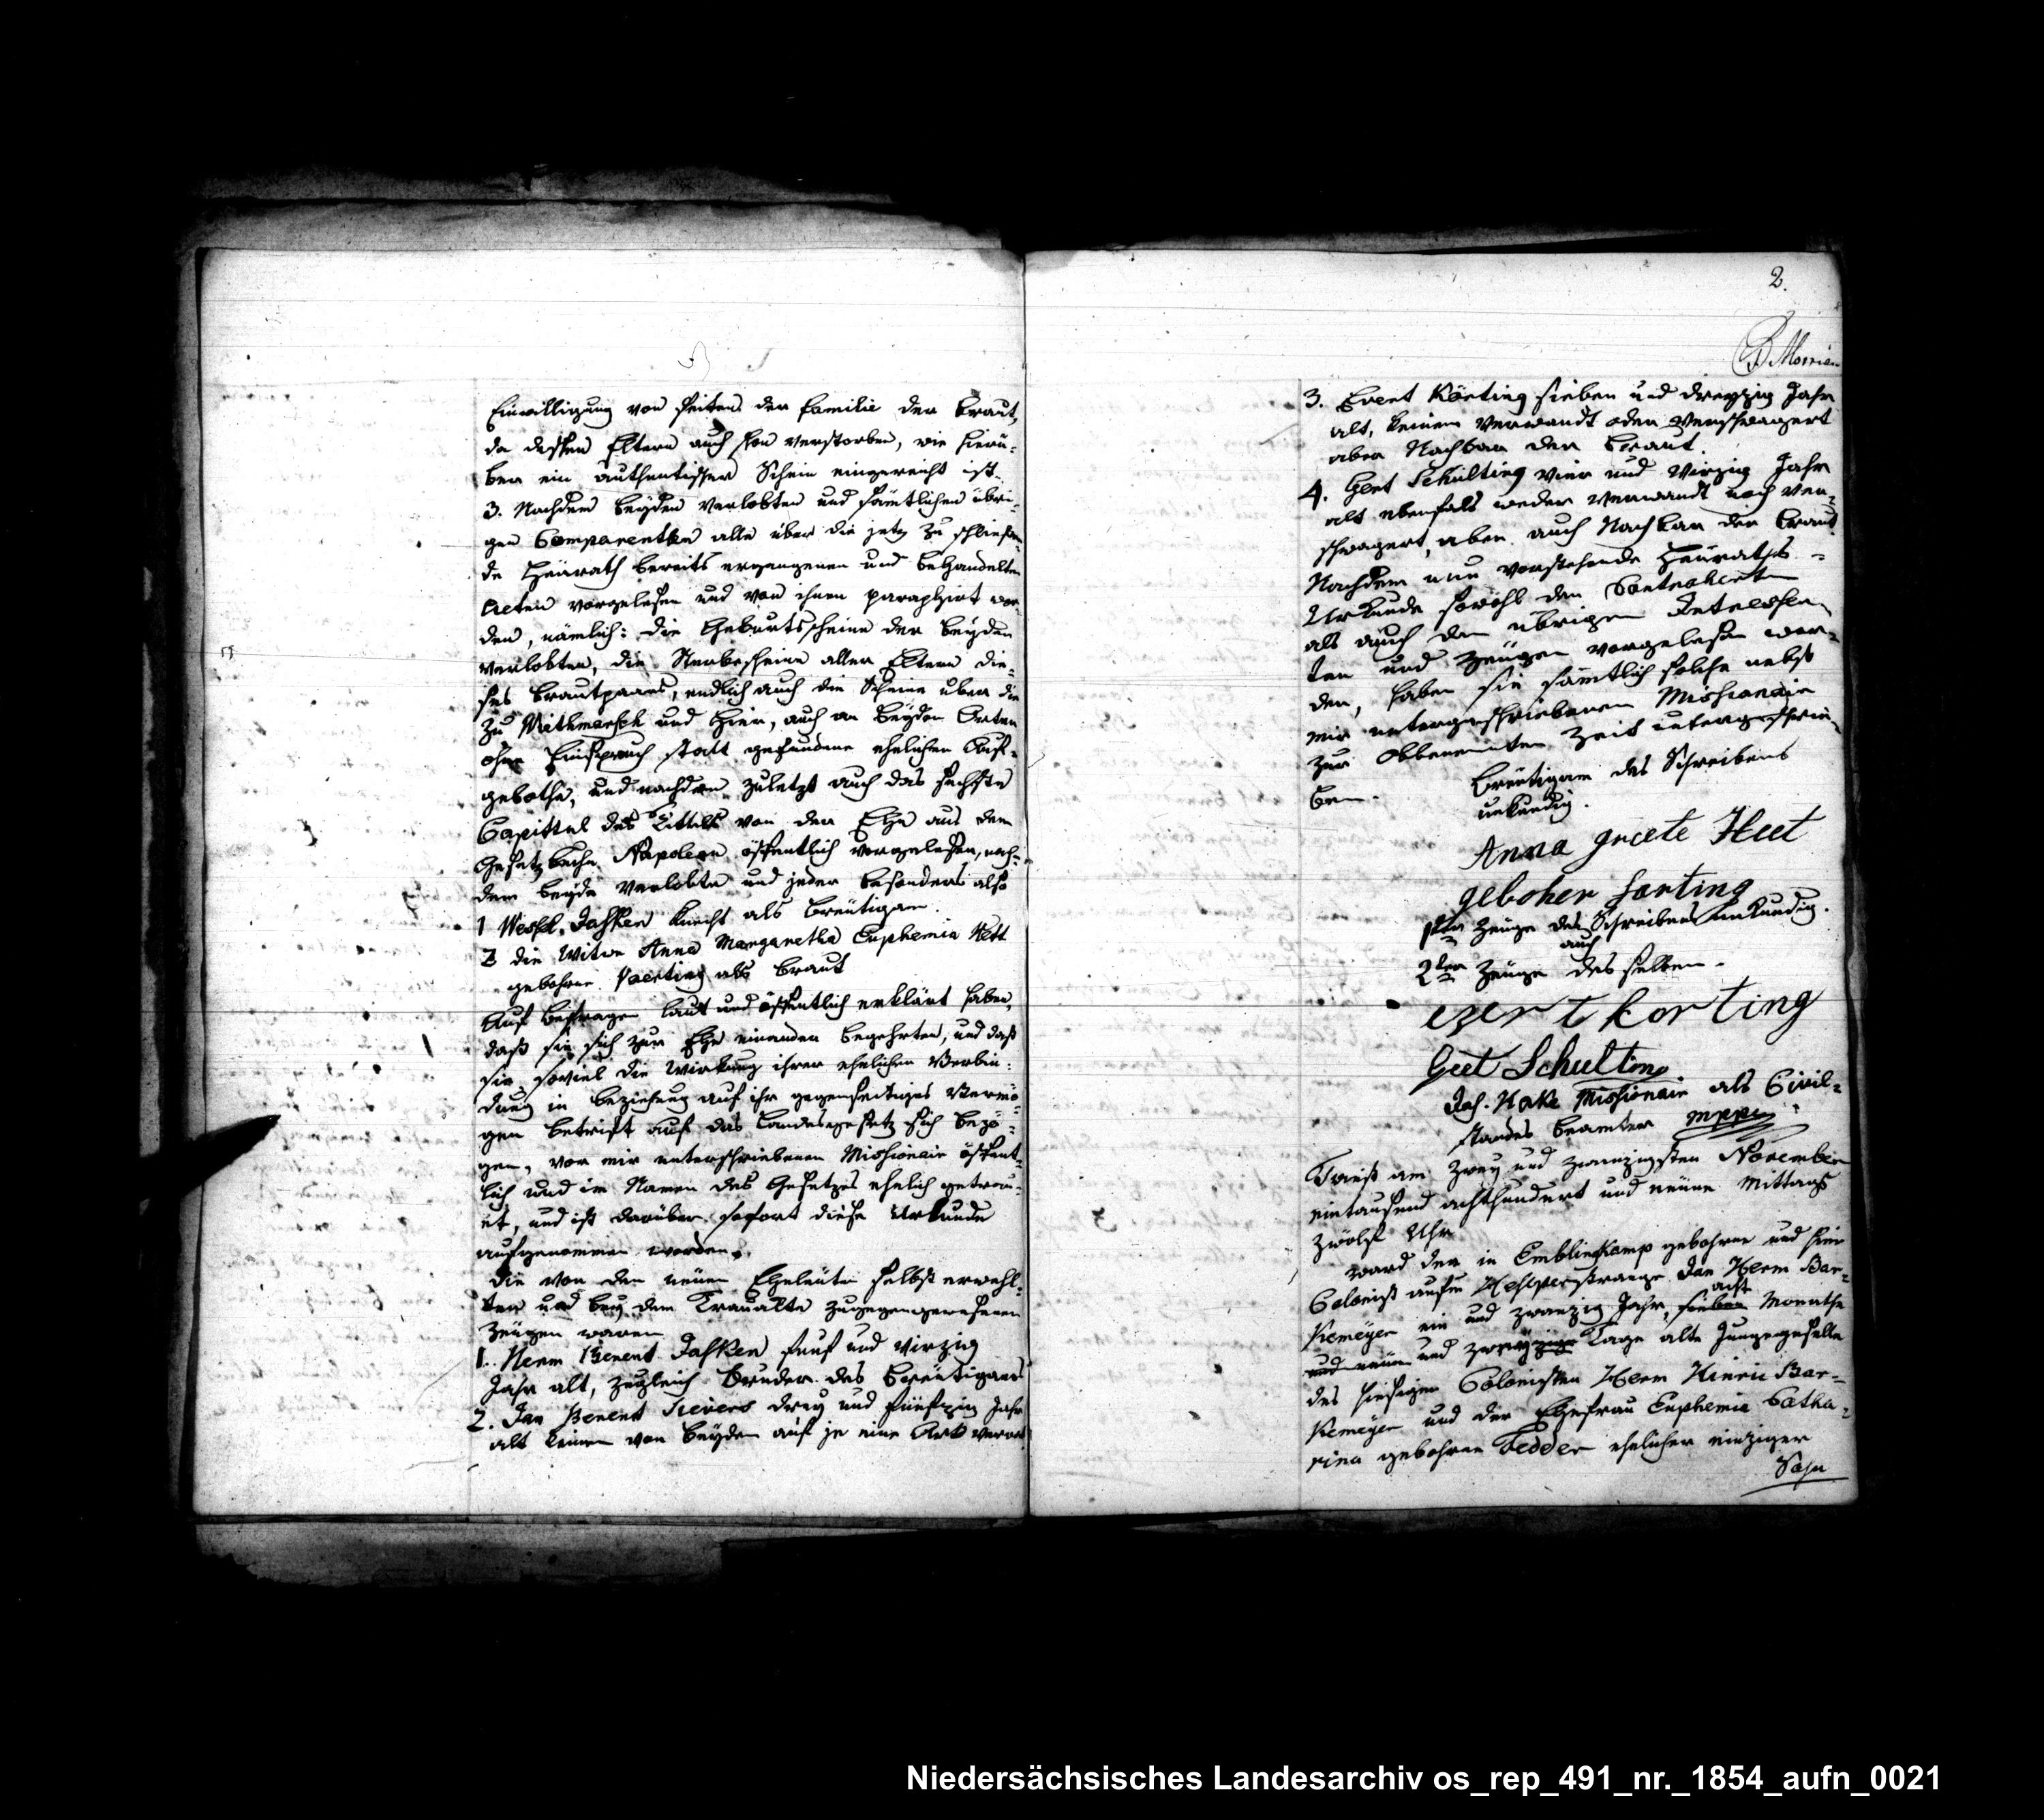 Einwilligung von Seiten der Familie der Braut,
da dessen Eltern auch schon verstorben, wie hierü-
ber ein authentischer Schein eingereicht ist.
3. Nachdem beyden Verlobten und sämtlichen übri-
gen Comparenten alle über die jetz zu schließen-
de Heürath bereits ergangenen und behandelten
Acten vorgelesen und von ihnen paraphirt wor-
den, nämlich: die Geburtsscheine der beyden
verlobten, die Sterbescheine aller Eltern die-
ses Brautpaars, endlich auch die Scheine über die
zu und hier, auch an beyden Orten
ohne Einspruch statt gefundene ehelichen Auf-
gebothe, und nachdem zuletzt auch das sechste
Capittel des Tittels von der Ehe aus dem
Gesetzbuche Napoleon öffentlich vorgelesen, nach-
dem beyde Verlobte und jeder besonders also
1 Wessel Knecht als Breütigam.
2 die Witwe Anna Margaretha Euphemia Hett
gebohrne als Braut
Auf befragen laut und öffentlich erklärt haben,
daß sie sich zur Ehe einander begehrten, und daß
sie, soviel die Wirkung ihrer ehelichen Verbin-
dung in Beziehung auf ihr gegenseitiges Vermö-
gen betrift auf das Landesgesetz sich bezö-
gen, von mir unterschriebenen Missionair öffent-
lich und im Namen des Gesetzes ehelich getrau-
et, und ist darüber sofort diese Urkunde
aufgenommen worden.
Die von den neüen Eheleüte selbst erwehl-
ten und bey dem Traualte zugegengewesenen
Zeügen waren
1. Herm Berent fünf und vierzig
Jahr alt, zugleich Bruder des Breütigams
2. Jan Berent Sievers drey und fünfzig Jahr
alt keinem von beyden auf je eine Art verwt
2.
Morrien
3. Evert Körting sieben und dreyzig Jahr
alt, keinem Verwandt oder Verschwagert
aber Nachbar der Braut.
4. Geert Schulting vier und vierzig Jahr
alt ebenfals weder Verwandt noch ver-
schwagert, aber auch Nachbar der Braut
Nachdem nun vorstehende Heüraths-
Urkunde sowohl den Contrahenten
als auch den übrigen Interessen-
ten und Zeügen vorgelesen wor-
den, haben sie sämtlich solche nebst
mir untergeschriebenen Missionair
zur obbenennten Zeit untergeschrie-
ben.
Breütigam des Schreibens
unkundig.
Anna greete Heet
geboher Korting
1ter Zeüge des Schreibens unkundig.
2ter Zeüge auch desselben.
evert korting
Geet Schulting
Joh. Hake Missionair als Civil-
standes Beamter mppr
Twist am zwey und zwanzigsten November
eintausend achthundert und neüne Mittags
zwölf Uhr
ward der in Emblinckamp gebohrne und hier
Colonist aufm Jan Herm Bar-
kemeyer ein und zwanzig Jahr, sieben acht Monathe
und neün und zwanzig Tage alte Junggeselle
des hiesigen Colonisten Herm Hinric Bar-
kemeyer und der Ehefrau Euphemia Catha-
rina gebohrne Fedder ehelicher einziger
Sohn
Niedersächsisches Landesarchiv os_rep_491_nr._1854_aufn_0021